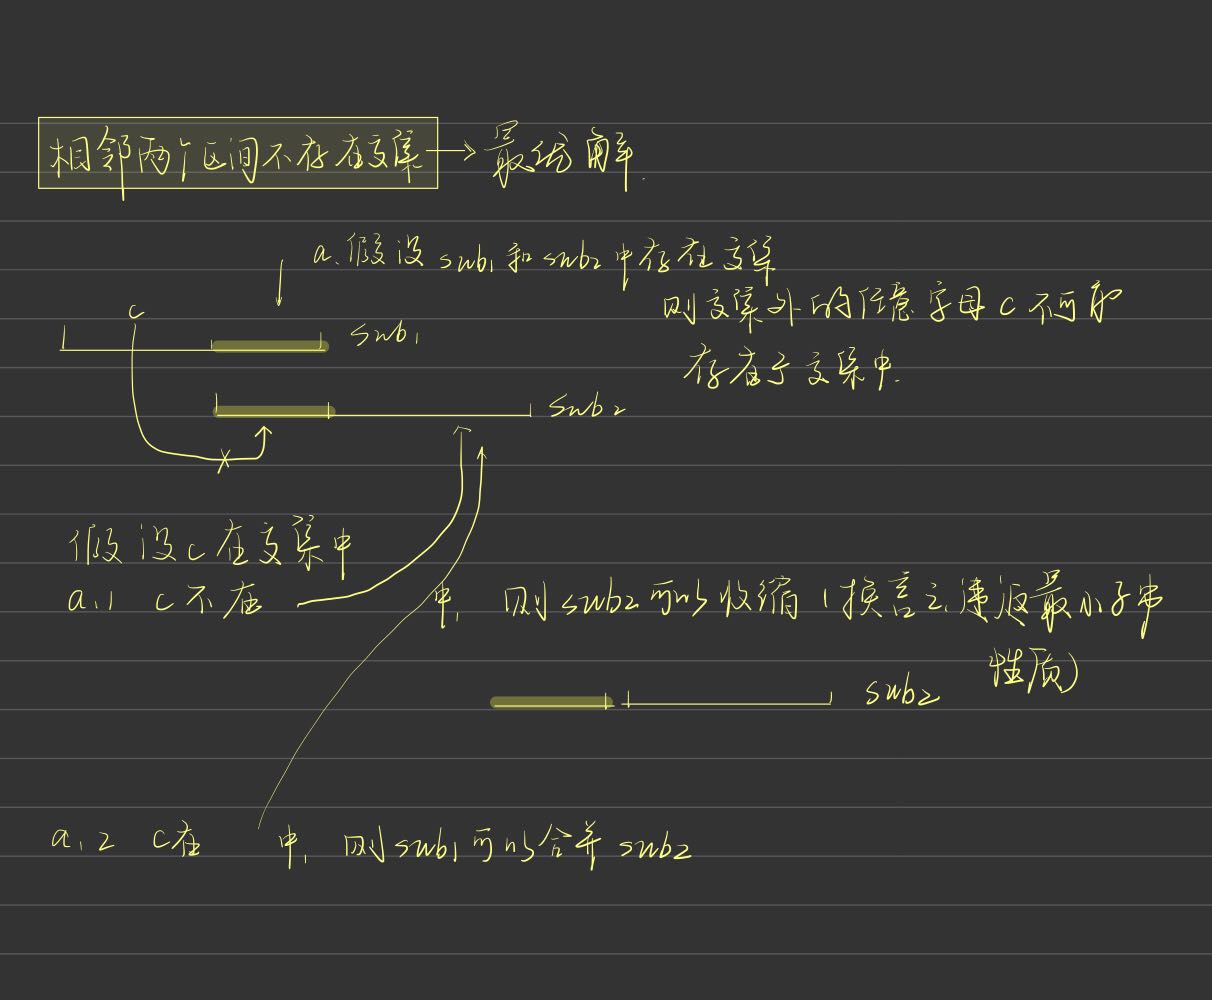 相邻两个区间不存在交集 → 最优解.
a.假设sub1和sub2中存在交集
则交集外的任意字母c不可能
存在于交集中.
c
sub1
sub2
假设c在交集中
a.1 c不在 中, 则sub2可以收缩(换言之,违反最小子串
性质)
sub2
a.2 c在 中, 则sub1可以合并sub2